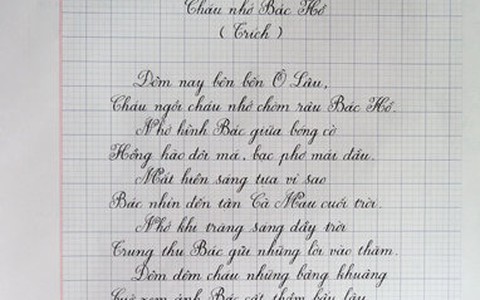 Cháu nhớ Bác Hồ
( Trích )
Đêm nay bên bến Ô Lâu,
Cháu ngồi cháu nhớ chòm râu Bác Hồ.
Nhớ hình Bác giữa bóng cờ
Hồng hào đôi má, bạc phơ mái đầu.
Mắt hiền sáng tựa vì sao
Bác nhìn đến tận Cà Mau cuối trời.
Nhớ khi trăng sáng đầy trời
Trung thu Bác gửi những lời vào thăm.
Đêm đêm cháu những bâng khuâng
Giở xem ảnh Bác cất thầm bấy lâu